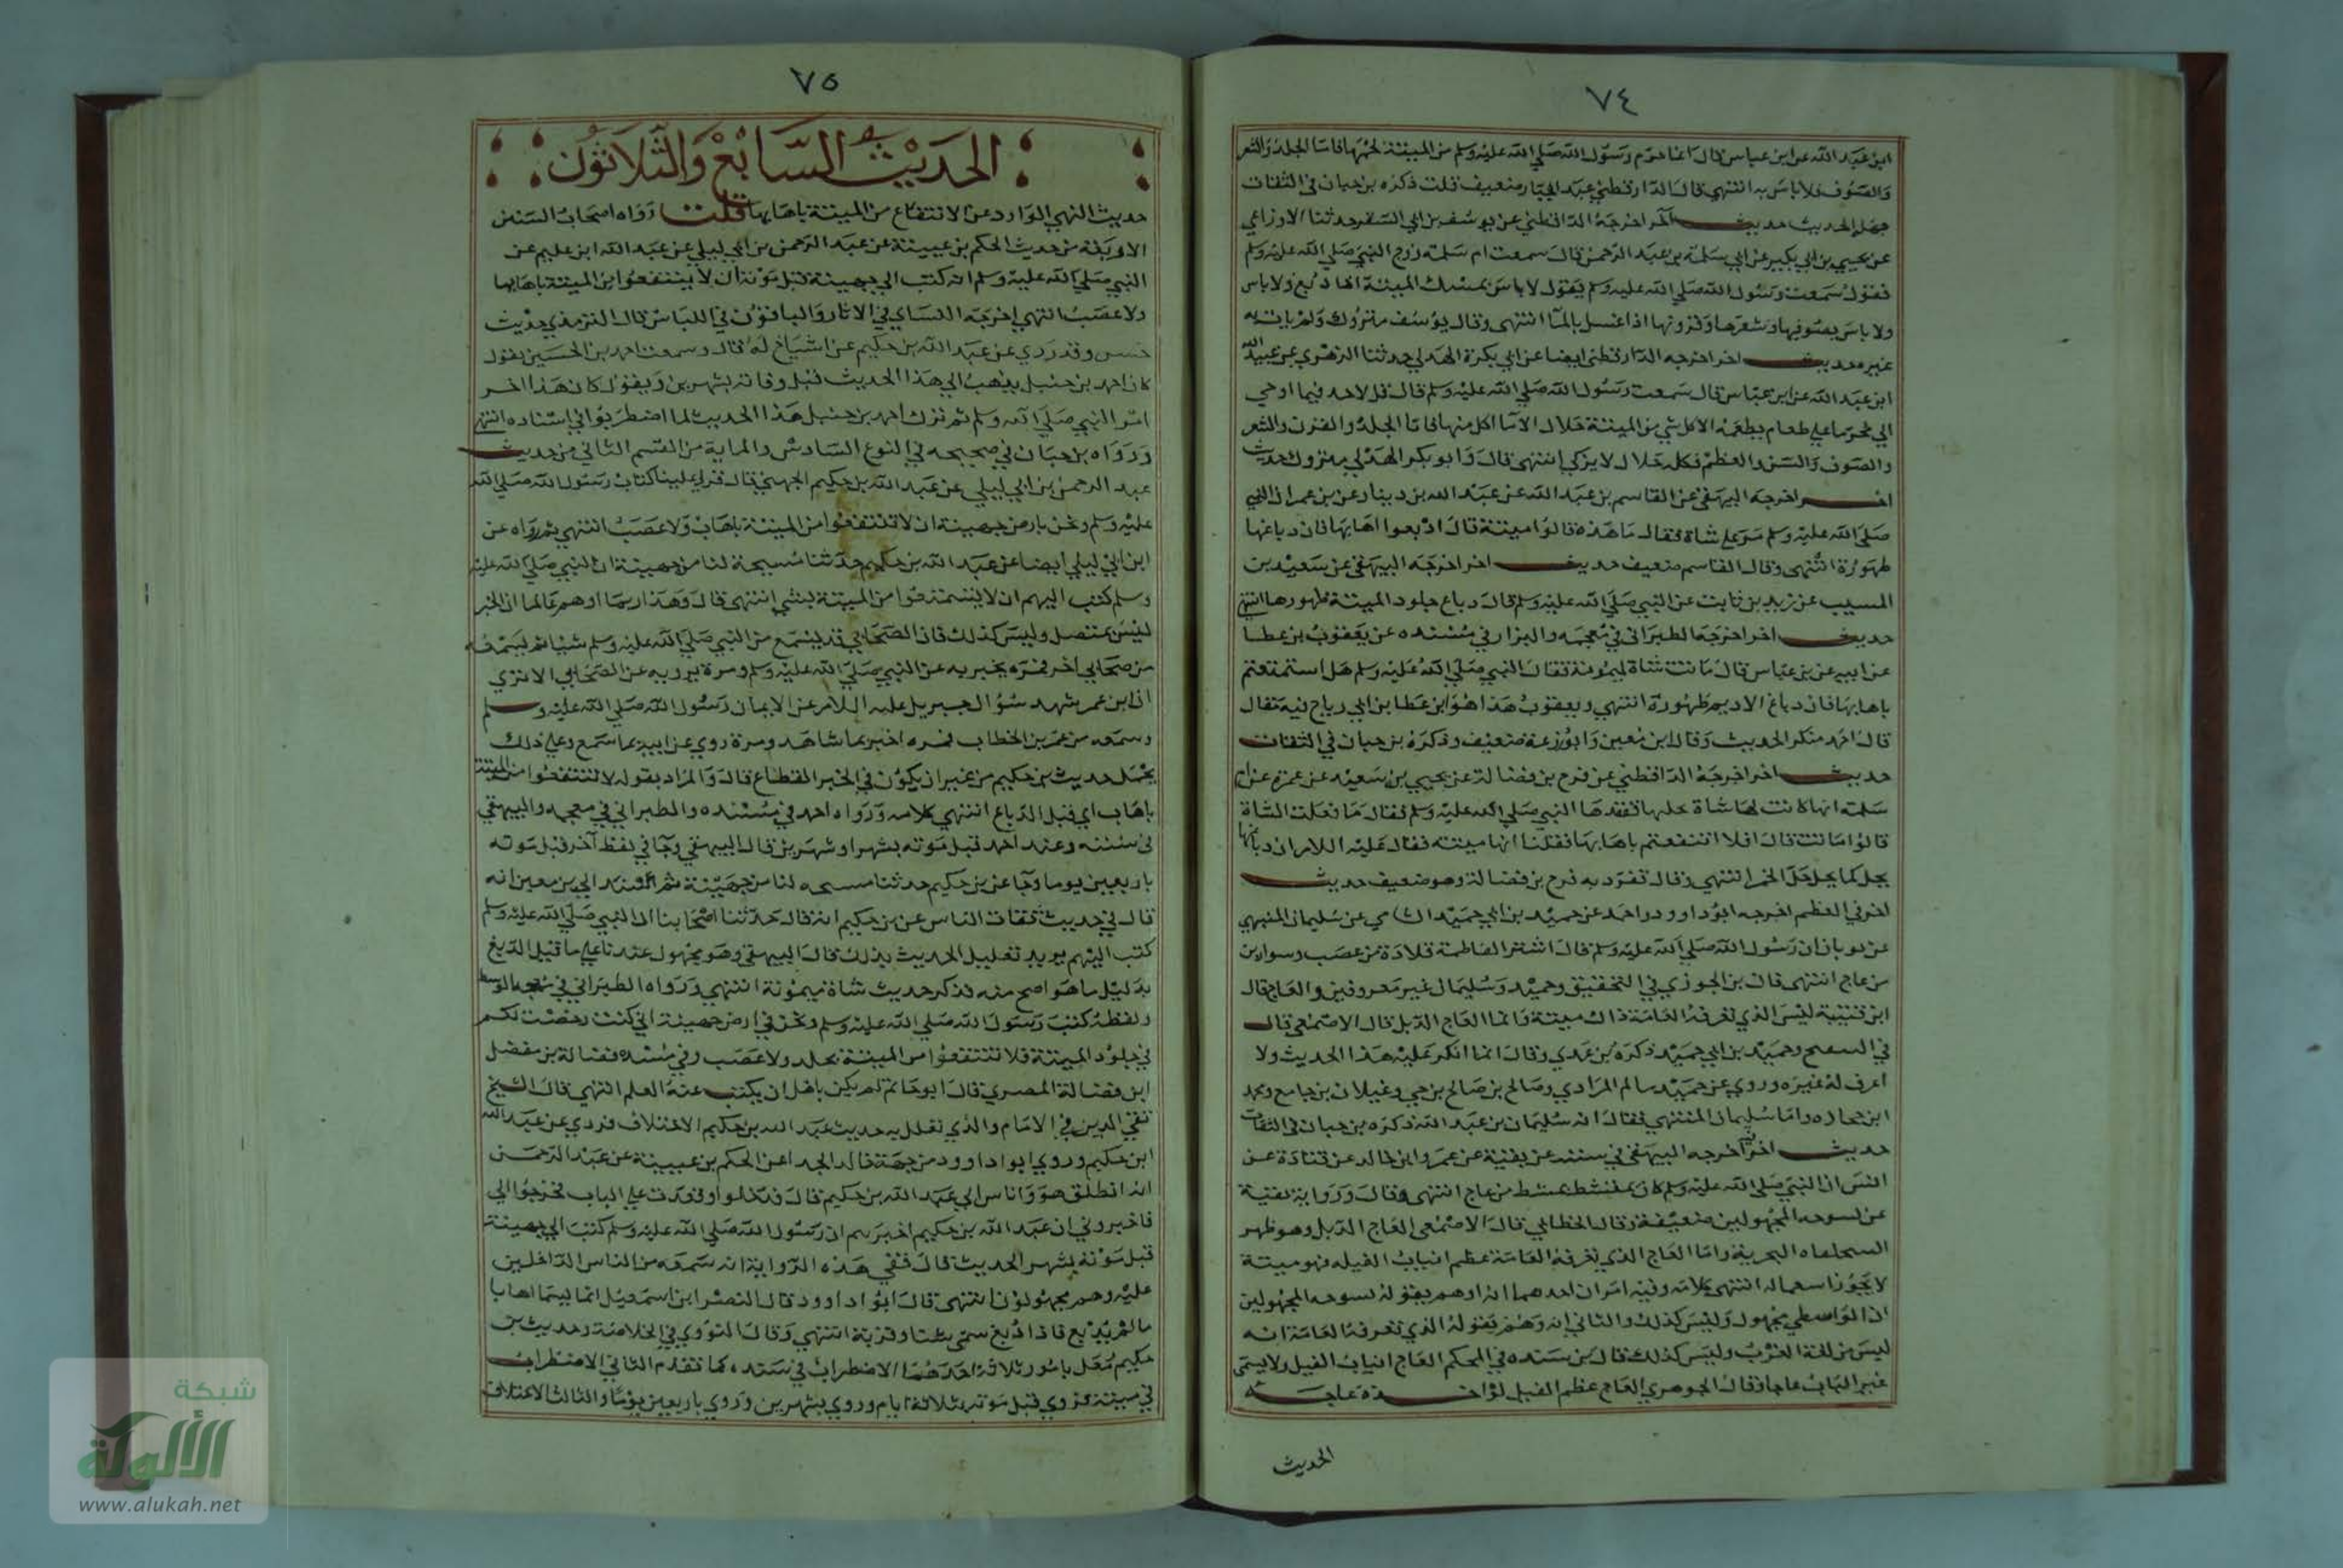 ٧٤
ابن عبد الله عن ابن عباس قال انما حرم رسول الله صلي الله عليه وسلم من الميتة لحمها فاما الجلد والشعر
والصوف فلا باس به انتهي قال الدارقطني عبد الجبار ضعيف قلت ذكره بن حبان في الثقات
الحديث حديث آخر اخرجه الداقطني عن يوسف بن ابي السفر حدثنا الاوزاعي
عن يحيي بن ابي بكير عن ابي سلمة بن عبد الرحمن قال سمعت ام سلمة زوج النبي صلي الله عليه وسلم
تقول سمعت رسول الله صلي الله عليه وسلم يقول لا باس بمسك الميتة اذا دبغ ولا باس
ولا باس بصوفها وشعرها وقرونها اذا غسل بالمآ انتهي وقال يوسف متروك ولم يات به
غيره حديث اخر اخرجه الدارقطني ايضا عن ابي بكرة الهدلي حدثنا الزهري عن عبيد الله
ابن عبد الله عن ابن عباس قال سمعت رسول الله صلي الله عليه وسلم قال قل لا اجد فيما اوحي
الي محرما علي طاعم يطعمه الا كل شي من الميتة حلال الا ما اكل منها فاما الجلد والقرن والشعر
والصوف والسن والعظم فكله حلال لا يزكي انتهي قال وابو بكر الهدلي متروك حديث
اخر اخرجه البيهقي عن القاسم بن عبد الله عن عبد الله بن دينار عن بن عمر ان النبي
صلي الله عليه وسلم مر علي شاة فقال ما هذه قالوا ميتة قال ادبغوا اهابها فان دباغها
طهوره انتهي وقال القاسم ضعيف حديث اخر اخرجه البيهقي عن سعيد بن
المسيب عن زيد بن ثابت عن النبي صلي الله عليه وسلم قال دباغ جلود الميتة طهورها انتهي
حديث اخر اخرجه الطبراني في معجمه والبزار في مسنده عن يعقوب بن عطا
عن ابيه عن بن عباس قال ماتت شاة لميمونة فقال النبي صلي الله عليه وسلم هل استمتعتم
باهابها فان دباغ الاديم طهوره انتهي ويعقوب هذا هو ابن عطا بن ابي رباح فيه مقال
قال احمد منكر الحديث وقال ابن معين وابو زرعة ضعيف وذكره بن حبان في الثقات
حديث اخر اخرجه الداقطني عن فرج بن فضالة عن يحيي بن سعيد عن عمرة عن ام
سلمة انها كانت لها شاة تحلبها تفقدها النبي صلي الله عليه وسلم فقال ما فعلت الشاة
قالوا ماتت قال افلا انتفعتم باهابها فقلنا انها ميتة فقال عليه اللام ان دباغها
يحل كما يحل خل الخمر انتهي وقال تفرد به فرج بن فضالة وهو ضعيف حديث
اخر في العظم اخرجه ابو داوود واحمد عن حميد بن ابي حميد الشامي عن سليمان المنبهي
عن ثوبان ان رسول الله صلي الله عليه وسلم قال اشتر لفاطمة قلادة من عصب وسوارين
من عاج انتهي قال بن الجوزي في التحقيق وحميد وسليمان غير معروفين والعاج قال
ابن قتيبة ليس الذي تعرفه العامة ذاك ميتة وانما العاج الذبل قال الاصمعي قال
في السعح وحميد بن ابي حميد ذكره بن عدي وقال انما انكر عليه هذا الحديث ولا
اعرف له غيره وروي عن حميد سالم المرادي وصالح بن صالح بن حي وغيلان بن جامع ومحمد
ابن جحاده واما سليمان المنتهي فقال انه سليمان بن عبد الله ذكره بن حبان في الثقات
حديث اخر اخرجه البيهقي في سننه عن بقية عن عمرو ابن خالد عن قتادة عن
انس ان النبي صلي الله عليه وسلم كان يمتشط بمشط من عاج انتهي وقال ورواية بقية
عن لسوحه المجهولين ضعيفة وقال الخطابي قال الاصمعي العاج الذبل وهو ظهر
السحلفاه البحرية واما العاج الذي تعرفه العامة عظم انياب الفيله فهو ميتة
لا يجوز استعماله انتهي كلامه وفيه امران احدهما انه اوهم بقوله لسوحه المجهولين
ان الواسطي مجهول وليس كذلك والثاني انه وهم بقوله الذي تعرفه العامة انه
ليس من لغة العرب وليس كذلك قال بن سيده في المحكم العاج انياب الفيل ولا يسمى
غير الناب عاجا وقال الجوهري العاج عظم الفيل لواحده عاجه
الحديث
٧٥
الحديث السابع والثلاثون
حديث النهي الوارد عن الانتفاع من الميتة باهابها قلت رواه اصحاب السنن
الاربعة من حديث الحكم بن عيينة عن عبد الرحمن بن ابي ليلي عن عبد الله ابن عليم عن
النبي صلي الله عليه وسلم انه كتب الي جهينة قبل موته ان لا ينتفعوا من الميتة باهابها
ولا عصب انتهي اخرجه النساي في الاثار والباقون في اللباس قال الترمذي حديث
حسن وقد روي عن عبد الله بن حكيم عن اشياخ له قال وسمعت احمد بن الحسين يقول
كان احمد بن حنبل يذهب الي هذا الحديث قبل وفاته بشهرين ويقول كان هذا اخر
امر النبي صلي الله وسلم ثم ترك احمد بن حنبل هذا الحديث لما اضطربوا في اسناده انتهي
ورواه بن حبان في صحيحه في النوع السادس والماية من القسم الثاني من حديث
عبد الرحمن بن ابي ليلي عن عبد الله بن حكيم الجهني قال قري علينا كتاب رسول الله صلي الله
عليه وسلم ونحن بارض جهينة ان لا تنتفعوا من الميتة باهاب ولا عصب انتهي ثم رواه عن
ابن ابي ليلي ايضا عن عبد الله بن حكيم حدثنا مسيحة لنا من جهينة ان النبي صلي الله عليه
وسلم كتب اليهم ان لا يستمتعوا من الميتة بشي انتهي قال وهذا ربما اوهم عالما ان الخبر
ليس بمتصل وليس كذلك فان الصحابي قد يسمع من النبي صلي الله عليه وسلم شيا ثم يسمعه
من صحابي اخر فمره يخبر به عن النبي صلي الله عليه وسلم ومرة يرويه عن الصحابي الا تري
ان ابن عمر شهد سؤال جبريل عليه اللام عن الايمان رسول الله صلي الله عليه وسلم
وسمعه من عمر بن الخطاب فمره اخبر بما شاهد ومرة روي عن ابيه ما سمع وعلي ذلك
يحمل حديث بن حكيم من غير ان يكون في الخبر انقطاع قال والمراد بقوله لا تنتفعوا من الميتة
باهاب اي قبل الدباغ انتهي كلامه ورواه احمد في مسنده والطبراني في معجمه والبيهقي
في سننه وعند احمد قبل موته بشهر او شهرين قال البيهقي وجا في لفظ آخر قبل موته
باربعين يوما وجا عن بن حكيم حدثنا مسيحه لنا من جهينة ثم اسند الي بن معين انه
قال في حديث ثقات الناس عن بن حكيم انه قال حدثنا اصحابنا ان النبي صلي الله عليه وسلم
كتب اليهم يريد تعليل الحديث بذلك قال البيهقي وهو مجهول عندنا علي ما قبل الدبغ
بدليل ما هو اصح منه فذكر حديث شاة ميمونة انتهي ورواه الطبراني في معجمه الوسط
ولفظه كتب رسول الله صلي الله عليه وسلم ونحن في ارض جهينة اني كنت رخصت لكم
في جلود الميتة فلا تنتفعوا من الميتة بجلد ولا عصب وفي سنده فضالة بن مفضل
ابن فضالة المصري قال ابو حاتم لم يكن باهل ان يكتب عنه العلم انتهي قال الشيخ
تقي الدين في الامام والذي تعلل به حديث عبد الله بن حكيم الاختلاف فروي عن عبد الله
ابن حكيم وروي ابو داوود من جهة خالد الحداء عن الحكم بن عيينة عن عبد الرحمن
انه انطلق هو واناس الي عبد الله بن حكيم قال فدخلوا وقعدت علي الباب فخرجوا الي
فاخبروني ان عبد الله بن حكيم اخبرهم ان رسول الله صلي الله عليه وسلم كتب الي جهينة
قبل موته بشهر الحديث قال ففي هذه الرواية انه سمعه من الناس الداخلين
عليه وهم مجهولون انتهي قال ابو داوود قال النضر ابن اسمعيل انما يسما اهابا
ما لم يدبغ فاذا دبغ سمي شنا وقربة انتهي وقال النووي في الخلاصة وحديث بن
حكيم معل بامور ثلاثة احدهما الاضطراب في سنده كما تقدم الثاني الاضطراب
في ميتنه فروي قبل موته بثلاثة ايام وروي بشهرين وروي باربعين يوما والثالث الاختلاف
شبكة
الألوكة
www.alukah.net